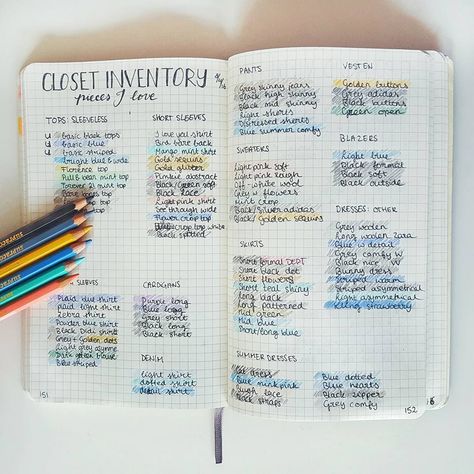 CLOSET INVENTORY
pieces I love
TOPS: SLEEVELESS
4 Basic black tops
4 Basic blue
4 Basic striped
Bright blue & wide
Florence top
Pull & bear mint top
Forever 21 mint top
SHORT SLEEVES
I love you shirt
Bird bare back
Mango mint shirt
Gold sequins
Gold glitter
Pimkie abstract
Black/Green soft
Black lace
Pink shirt
See through wide
Flower crop top
crop top white
Black spotted
SLEEVES
Plaid blue shirt
Plaid white shirt
Zebra shirt
Powder blue shirt
Black Didi shirt
Grey + Golden dots
Light grey
Didi green blouse
Blue striped
CARDIGANS
Purple long
Blue long
Grey short
Black long
Black short
DENIM
Light shirt
Dotted shirt
Detail shirt
151
PANTS
Grey skinny jeans
Black high skinny
Black mid skinny
Light shorts
Distressed shorts
Blue summer comfy
SWEATERS
Light pink soft
Light pink rough
Off-white wool
Grey w flowers
Mint crop
Black/Silver adidas
Black/Golden sequins
SKIRTS
Short formal DEPT
Short black dot
Short flowers
Short teal shiny
Long black
Long patterned
Mid green
Mid blue
Short/long blue
SUMMER DRESSES
Red dress
Blue mink pink
Blush lace
Black straps
Blue dotted
Blue hearts
Black zipper
Grey comfy
VESTEN
Golden buttons
Grey zipper
Black buttons
Green open
BLAZERS
Light blue
Black formal
Black soft
Black outside
DRESSES: OTHER
Grey woolen
Long woolen Zara
Blue w detail
Grey comfy W
Black nice W
Bunny dress
Striped warm
Striped asymmetrical
Light asymmetrical
King strawberry
152